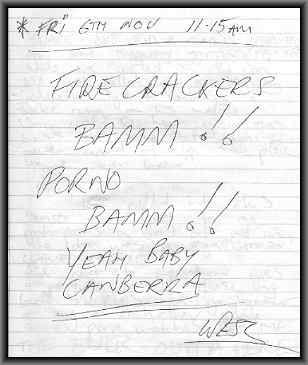 * FRI 6TH NOV 11-15AM
FIRE CRACKERS
BAMM!!
PORNO
BAMM!!
YEAH BABY
CANBERRA